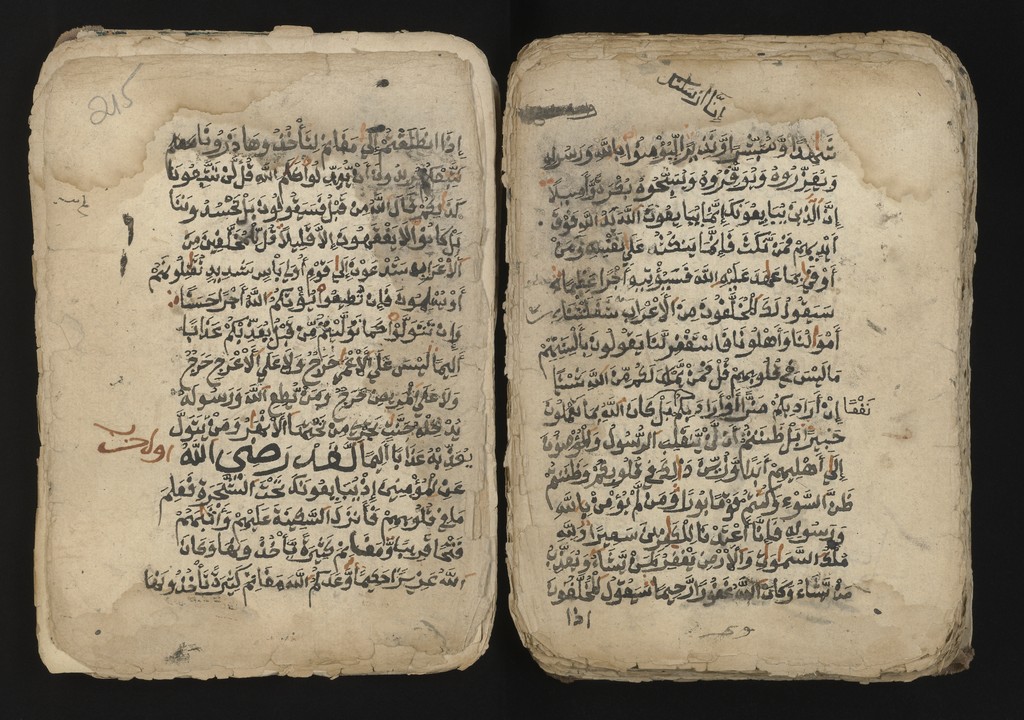 انا ارسلنك
شَٰهِدًا وَمُبَشِّرًا وَنَذِيرًا لِّتُؤْمِنُوا بِاللَّهِ وَرَسُولِهِ
وَتُعَزِّرُوهُ وَتُوَقِّرُوهُ وَتُسَبِّحُوهُ بُكْرَةً وَأَصِيلًا
إِنَّ الَّذِينَ يُبَايِعُونَكَ إِنَّمَا يُبَايِعُونَ اللَّهَ يَدُ اللَّهِ فَوْقَ
أَيْدِيهِمْ فَمَن نَّكَثَ فَإِنَّمَا يَنكُثُ عَلَىٰ نَفْسِهِ وَمَنْ
أَوْفَىٰ بِمَا عَٰهَدَ عَلَيْهُ اللَّهَ فَسَيُؤْتِيهِ أَجْرًا عَظِيمًا
سَيَقُولُ لَكَ الْمُخَلَّفُونَ مِنَ الْأَعْرَابِ شَغَلَتْنَا
أَمْوَٰلُنَا وَأَهْلُونَا فَاسْتَغْفِرْ لَنَا يَقُولُونَ بِأَلْسِنَتِهِم
مَا لَيْسَ فِي قُلُوبِهِمْ قُلْ فَمَن يَمْلِكُ لَكُم مِّنَ اللَّهِ شَيْئًا
إِنْ أَرَادَ بِكُمْ ضَرًّا أَوْ أَرَادَ بِكُمْ نَفْعًا بَلْ كَانَ اللَّهُ بِمَا تَعْمَلُونَ
خَبِيرًا بَلْ ظَنَنتُمْ أَن لَّن يَنقَلِبَ الرَّسُولُ وَالْمُؤْمِنُونَ
إِلَىٰ أَهْلِيهِمْ أَبَدًا وَزُيِّنَ ذَٰلِكَ فِي قُلُوبِكُمْ وَظَنَنتُمْ
ظَنَّ السَّوْءِ وَكُنتُمْ قَوْمًا بُورًا وَمَن لَّمْ يُؤْمِن بِاللَّهِ
وَرَسُولِهِ فَإِنَّا أَعْتَدْنَا لِلْكَٰفِرِينَ سَعِيرًا وَلِلَّهِ
مُلْكُ السَّمَٰوَٰتِ وَالْأَرْضِ يَغْفِرُ لِمَن يَشَاءُ وَيُعَذِّبُ
مَن يَشَاءُ وَكَانَ اللَّهُ غَفُورًا رَّحِيمًا سَيَقُولُ الْمُخَلَّفُونَ
اذا
215
إِذَا انطَلَقْتُمْ إِلَىٰ مَغَانِمَ لِتَأْخُذُوهَا ذَرُونَا
نَتَّبِعْكُمْ يُرِيدُونَ أَن يُبَدِّلُوا كَلَٰمَ اللَّهِ قُل لَّن تَتَّبِعُونَا
كَذَٰلِكُمْ قَالَ اللَّهُ مِن قَبْلُ فَسَيَقُولُونَ بَلْ تَحْسُدُونَنَا
بَلْ كَانُوا لَا يَفْقَهُونَ إِلَّا قَلِيلًا قُل لِّلْمُخَلَّفِينَ مِنَ
الْأَعْرَابِ سَتُدْعَوْنَ إِلَىٰ قَوْمٍ أُولِي بَأْسٍ شَدِيدٍ تُقَٰتِلُونَهُمْ
أَوْ يُسْلِمُونَ فَإِن تُطِيعُوا يُؤْتِكُمُ اللَّهُ أَجْرًا حَسَنًا
وَإِن تَتَوَلَّوْا كَمَا تَوَلَّيْتُم مِّن قَبْلُ يُعَذِّبْكُمْ عَذَابًا
أَلِيمًا لَّيْسَ عَلَى الْأَعْمَىٰ حَرَجٌ وَلَا عَلَى الْأَعْرَجِ حَرَجٌ
وَلَا عَلَى الْمَرِيضِ حَرَجٌ وَمَن يُطِعِ اللَّهَ وَرَسُولَهُ
يُدْخِلْهُ جَنَّٰتٍ تَجْرِي مِن تَحْتِهَا الْأَنْهَٰرُ وَمَن يَتَوَلَّ
يُعَذِّبْهُ عَذَابًا أَلِيمًا لَّقَدْ رَضِيَ اللَّهُ
عَنِ الْمُؤْمِنِينَ إِذْ يُبَايِعُونَكَ تَحْتَ الشَّجَرَةِ فَعَلِمَ
مَا فِي قُلُوبِهِمْ فَأَنزَلَ السَّكِينَةَ عَلَيْهِمْ وَأَثَٰبَهُمْ
فَتْحًا قَرِيبًا وَمَغَانِمَ كَثِيرَةً يَأْخُذُونَهَا وَكَانَ
اللَّهُ عَزِيزًا حَكِيمًا وَعَدَكُمُ اللَّهُ مَغَانِمَ كَثِيرَةً تَأْخُذُونَهَا